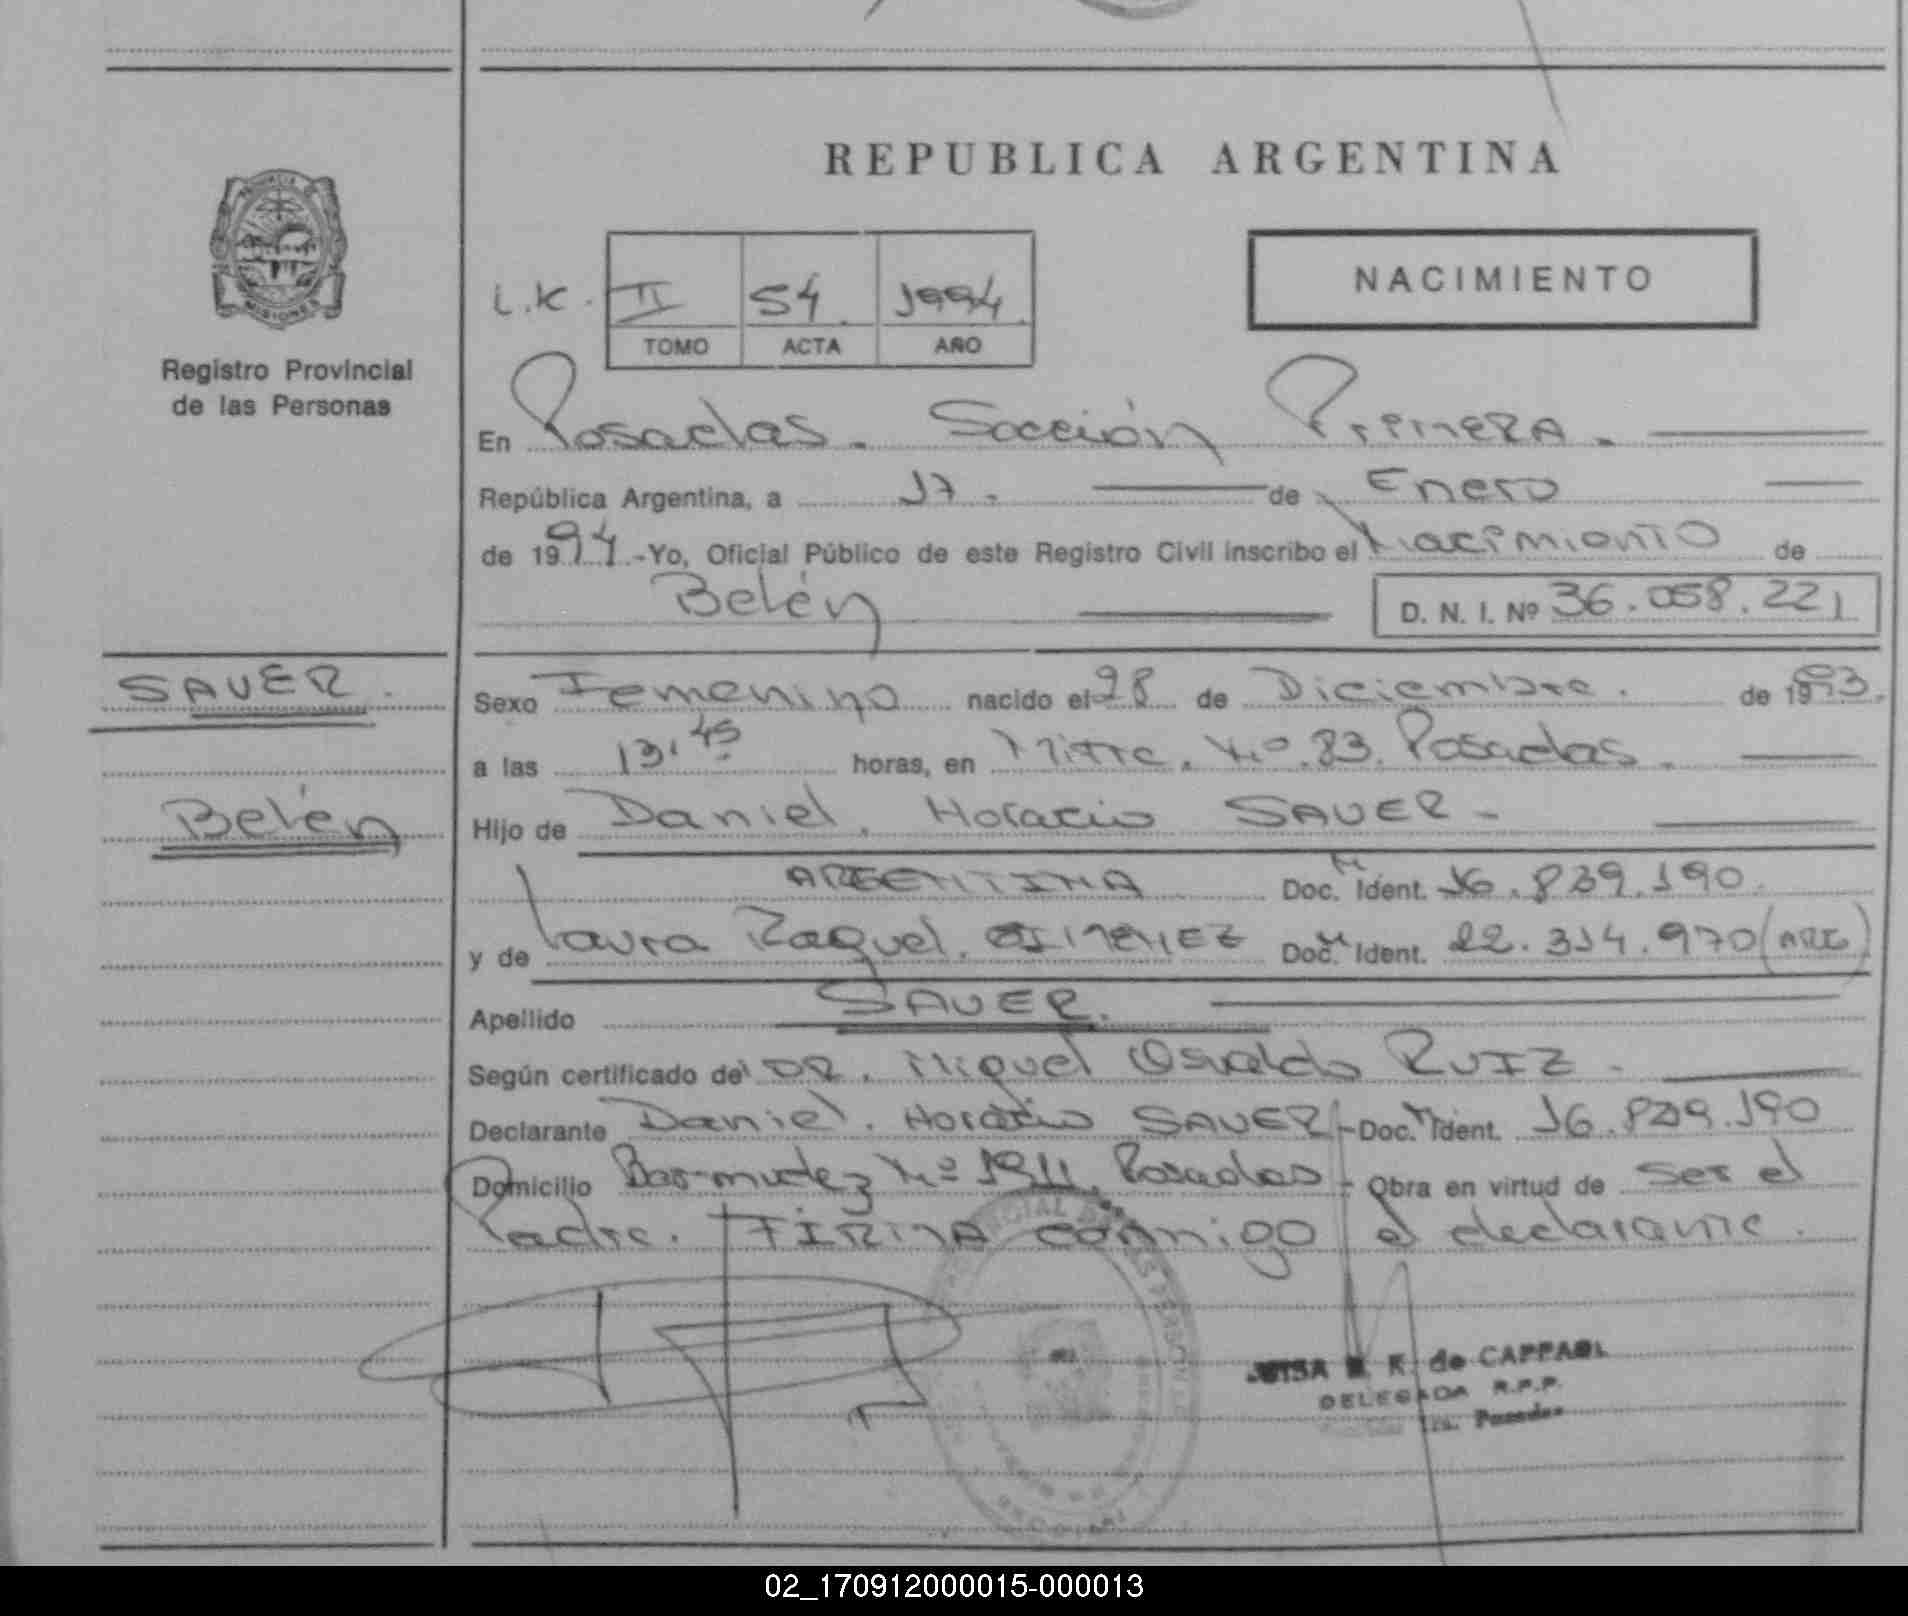 REPUBLICA ARGENTINA
PROVINCIA DE
MISIONES
Registro Provincial
de las Personas
L.K. II 54. 1994.
TOMO ACTA AÑO
NACIMIENTO
En Posadas. Sección Primera.
República Argentina, a 17. de Enero
de 1994.-Yo, Oficial Público de este Registro Civil inscribo el Nacimiento de
Belén D. N. I. Nº 36.058.221
SAUER.
Sexo Femenino nacido el 28 de Diciembre. de 1993.
a las 13,45 horas, en Mitre. Nº.83. Posadas.
Belén
Hijo de Daniel. Horacio SAUER-
ARGENTINA Doc. M. Ident. 16.839.190.
y de Laura Raquel. GIMENEZ Doc. M. Ident. 22.314.970 (ARG)
Apellido SAUER.
Según certificado del DR. Miguel Osvaldo RUIZ.
Declarante Daniel. Horacio SAUER-Doc. M. Ident. 16.839.190
Domicilio Bermudez Nº 1911. Posadas- Obra en virtud de ser el
Padre. FIRMA conmigo el declarante.
de CAPPAGL
DELEGADA R.P.P.
Posadas
02_170912000015-000013